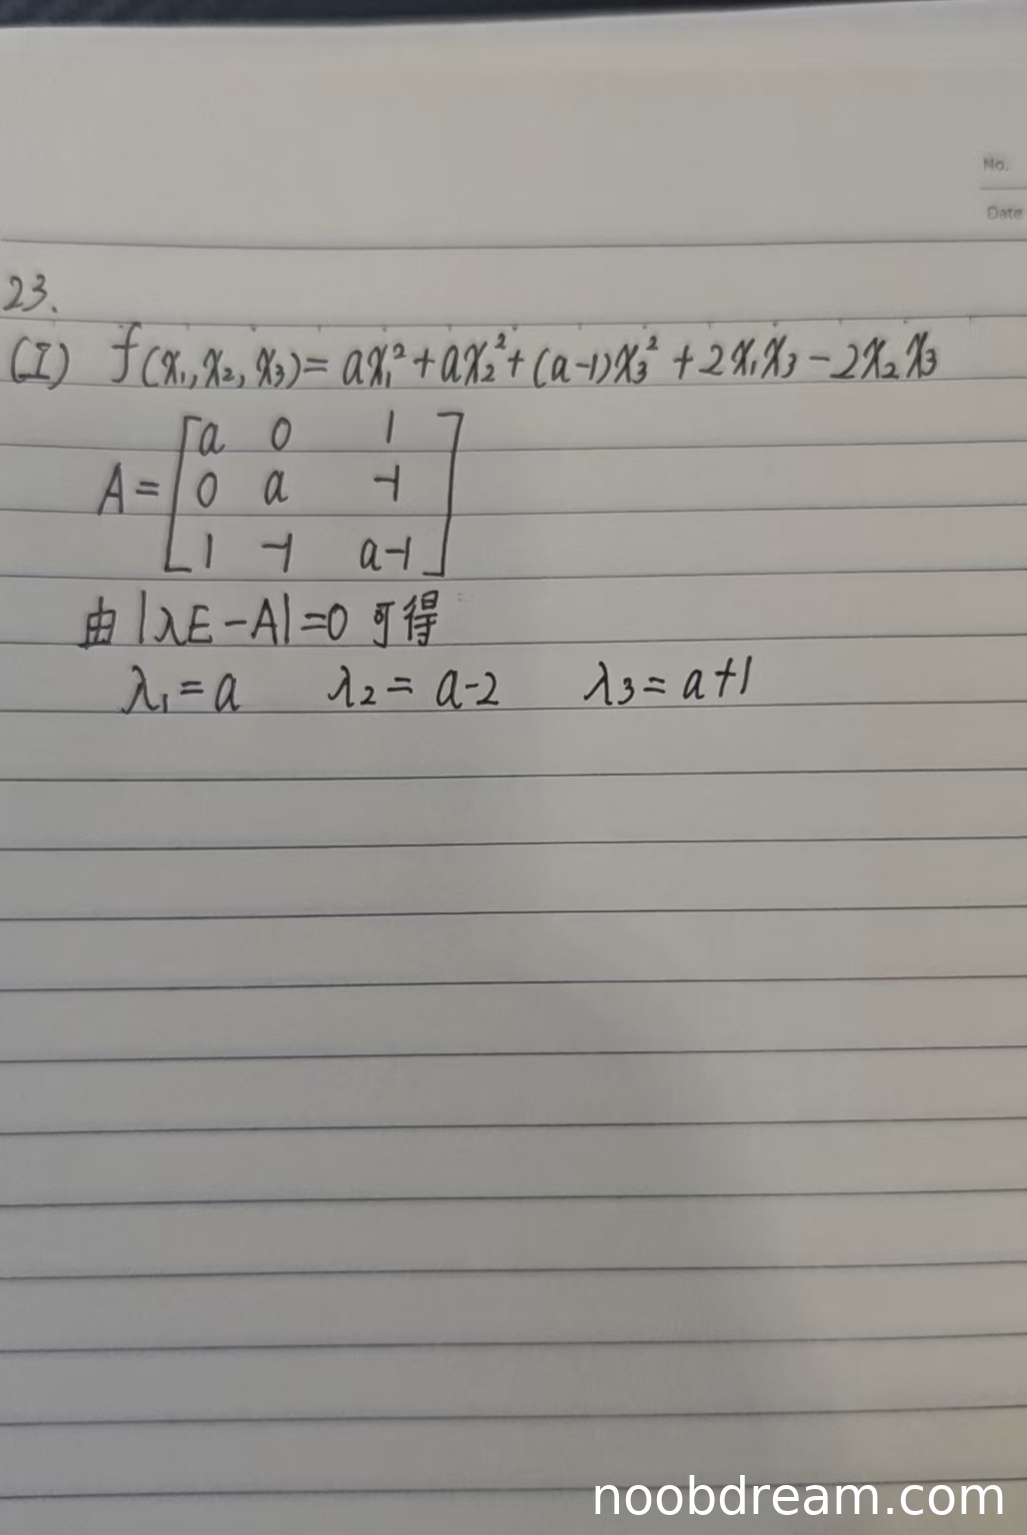 No.
Date
23.
(I) f(x₁,x₂,x₃)=ax₁²+ax₂²+(a-1)x₃²+2x₁x₃-2x₂x₃
A=[a 0 1
0 a -1
1 -1 a-1]
由|λE-A|=0 可得
λ₁=a λ₂=a-2 λ₃=a+1
noobdream.com